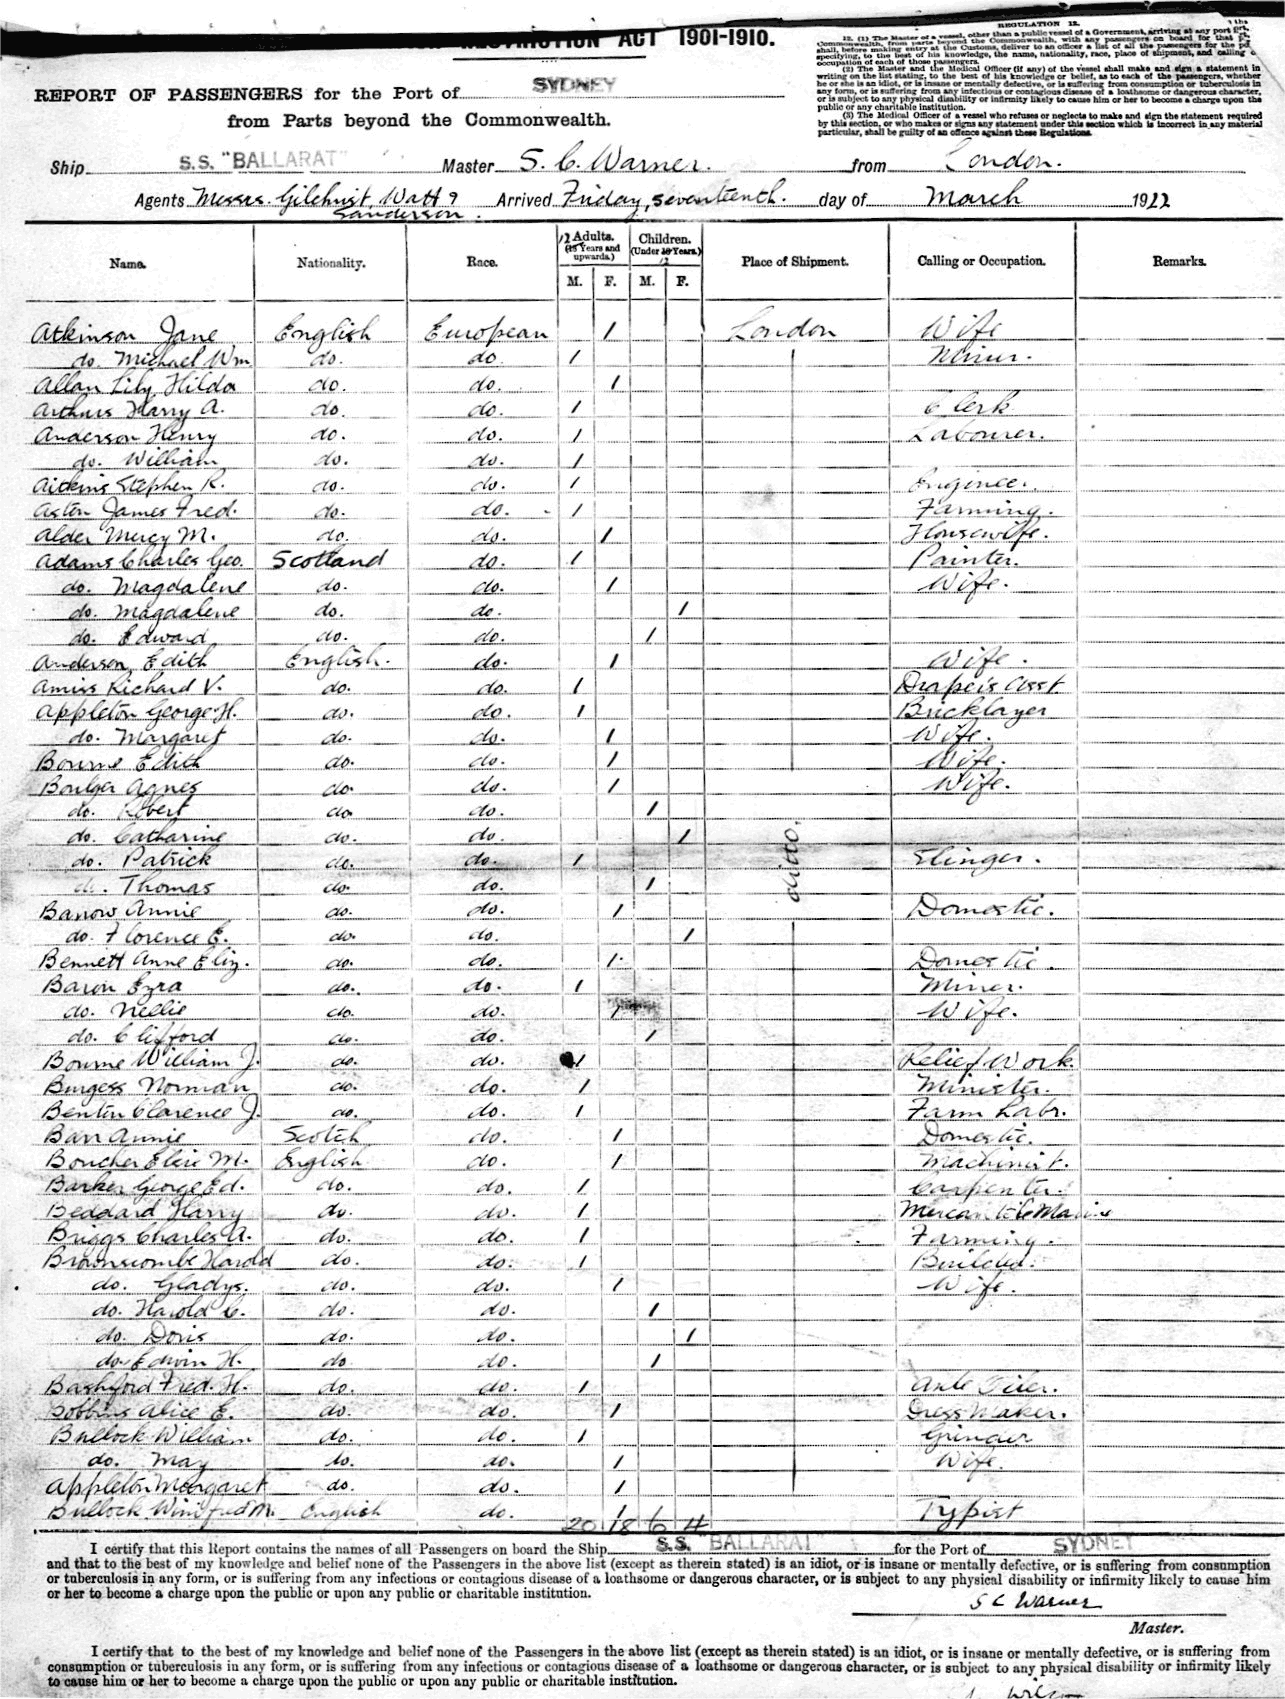 RESTRICTION ACT 1901-1910.
REGULATION 12.
12. (1) The Master of a vessel, other than a public vessel of a Government, arriving at any port
Commonwealth, from parts beyond the Commonwealth, with any passengers on board for that
shall, before making entry at the Customs, deliver to an officer a list of all the passengers for the
specifying, to the best of his knowledge, the name, nationality, race, place of shipment, and calling
occupation of each of those passengers.
(2) The Master and the Medical Officer (if any) of the vessel shall make and sign a statement in
writing on the list stating, to the best of his knowledge or belief, as to each of the passengers, whether
he or she is an idiot, or is insane or mentally defective, or is suffering from consumption or tuberculosis in
any form, or is suffering from any infectious or contagious disease of a loathsome or dangerous character,
or is subject to any physical disability or infirmity likely to cause him or her to become a charge upon the
public or any charitable institution.
(3) The Medical Officer of a vessel who refuses or neglects to make and sign the statement required
by this section, or who makes or signs any statement under this section which is incorrect in any material
particular, shall be guilty of an offence against these Regulations.
REPORT OF PASSENGERS for the Port of SYDNEY
from Parts beyond the Commonwealth.
Ship S.S. "BALLARAT" Master S. C. Warner. from London.
Agents Messrs. Gilchrist, Watt & Sanderson. Arrived Friday, seventeenth. day of March 1922
Name. Nationality. Race. 12 Adults. (15 Years and upwards.) Children. (Under Years.) 12 Place of Shipment. Calling or Occupation. Remarks.
M. F. M. F.
Atkinson Jane English European 1 London Wife
do. Michael Wm. do. do. 1 Miner.
Allan Lily Hilda do. do. 1
Arthurs Harry A. do. do. 1 Clerk
Anderson Henry do. do. 1 Labourer.
do. William do. do. 1
Aitkins Stephen R. do. do. 1 Engineer.
Aston James Fred. do. do. 1 Farming.
Alder Mercy M. do. do. 1 Housewife.
Adams Charles Geo. Scotland do. 1 Painter.
do. Magdalene do. do. 1 Wife.
do. Magdalene do. do. 1
do. Edward do. do. 1
Anderson Edith English. do. 1 Wife.
Amiss Richard V. do. do. 1 Draper's Asst
Appleton George H. do. do. 1 Bricklayer
do. Margaret do. do. 1 Wife.
Bourne Edith do. do. 1 Wife.
Boulger Agnes do. do. 1 Wife.
do. Robert do. do. 1
do. Catharine do. do. 1 ditto.
do. Patrick do. do. 1 Slinger.
do. Thomas do. do. 1
Barrow Annie do. do. 1 Domestic.
do. Florence E. do. do. 1
Bennett Anne Eliz. do. do. 1 Domestic.
Baron Ezra do. do. 1 Miner.
do. Nellie do. do. 1 Wife.
do. Clifford do. do. 1
Bourne William J. do. do. 1 Relief Work.
Burgess Norman do. do. 1 Minister.
Benton Clarence J. do. do. 1 Farm Labr.
Barr Annie Scotch do. 1 Domestic.
Boucher Elsie M. English do. 1 Machinist.
Barker George Ed. do. do. 1 Carpenter.
Beddard Harry do. do. 1 Mercantile Marine
Briggs Charles A. do. do. 1 Farming.
Brownscombe Harold do. do. 1 Builder.
do. Gladys. do. do. 1 Wife.
do. Harold C. do. do. 1
do. Doris do. do. 1
do. Edwin H. do. do. 1
Bashford Fred. H. do. do. 1
Bobbins Alice E. do. do. 1 Dress Maker.
Bullock William do. do. 1 Grinder
do. May do. do. 1 Wife.
Appleton Margaret do. do. 1
Bullock Winifred M. English do. 1 Typist
20 18 6 4
I certify that this Report contains the names of all Passengers on board the Ship S.S. "BALLARAT" for the Port of SYDNEY
and that to the best of my knowledge and belief none of the Passengers in the above list (except as therein stated) is an idiot, or is insane or mentally defective, or is suffering from consumption
or tuberculosis in any form, or is suffering from any infectious or contagious disease of a loathsome or dangerous character, or is subject to any physical disability or infirmity likely to cause him
or her to become a charge upon the public or upon any public or charitable institution.
S C Warner
Master.
I certify that to the best of my knowledge and belief none of the Passengers in the above list (except as therein stated) is an idiot, or is insane or mentally defective, or is suffering from
consumption or tuberculosis in any form, or is suffering from any infectious or contagious disease of a loathsome or dangerous character, or is subject to any physical disability or infirmity likely
to cause him or her to become a charge upon the public or upon any public or charitable institution.